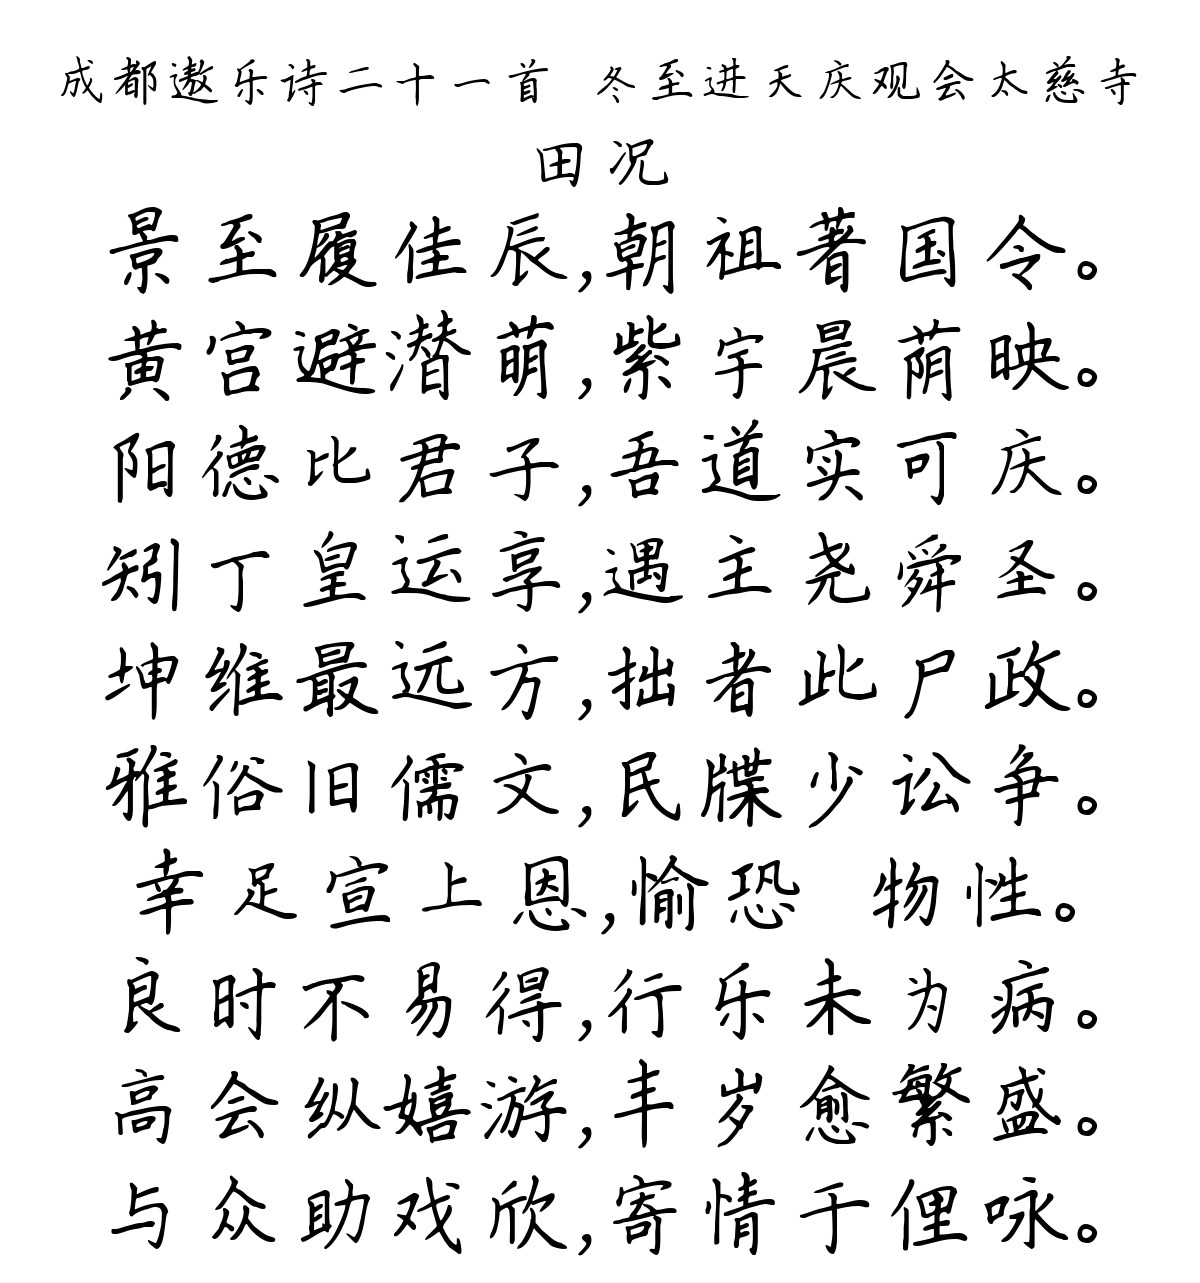 成都遨乐诗二十一首 冬至进天庆观会太慈寺
田况
景至履佳辰,朝祖著国令。
黄宫避潜萌,紫宇晨荫映。
阳德比君子,吾道实可庆。
矧丁皇运享,遇主尧舜圣。
坤维最远方,拙者此尸政。
雅俗旧儒文,民牒少讼争。
幸足宣上恩,愉恐 物性。
良时不易得,行乐未为病。
高会纵嬉游,丰岁愈繁盛。
与众助戏欣,寄情于俚咏。